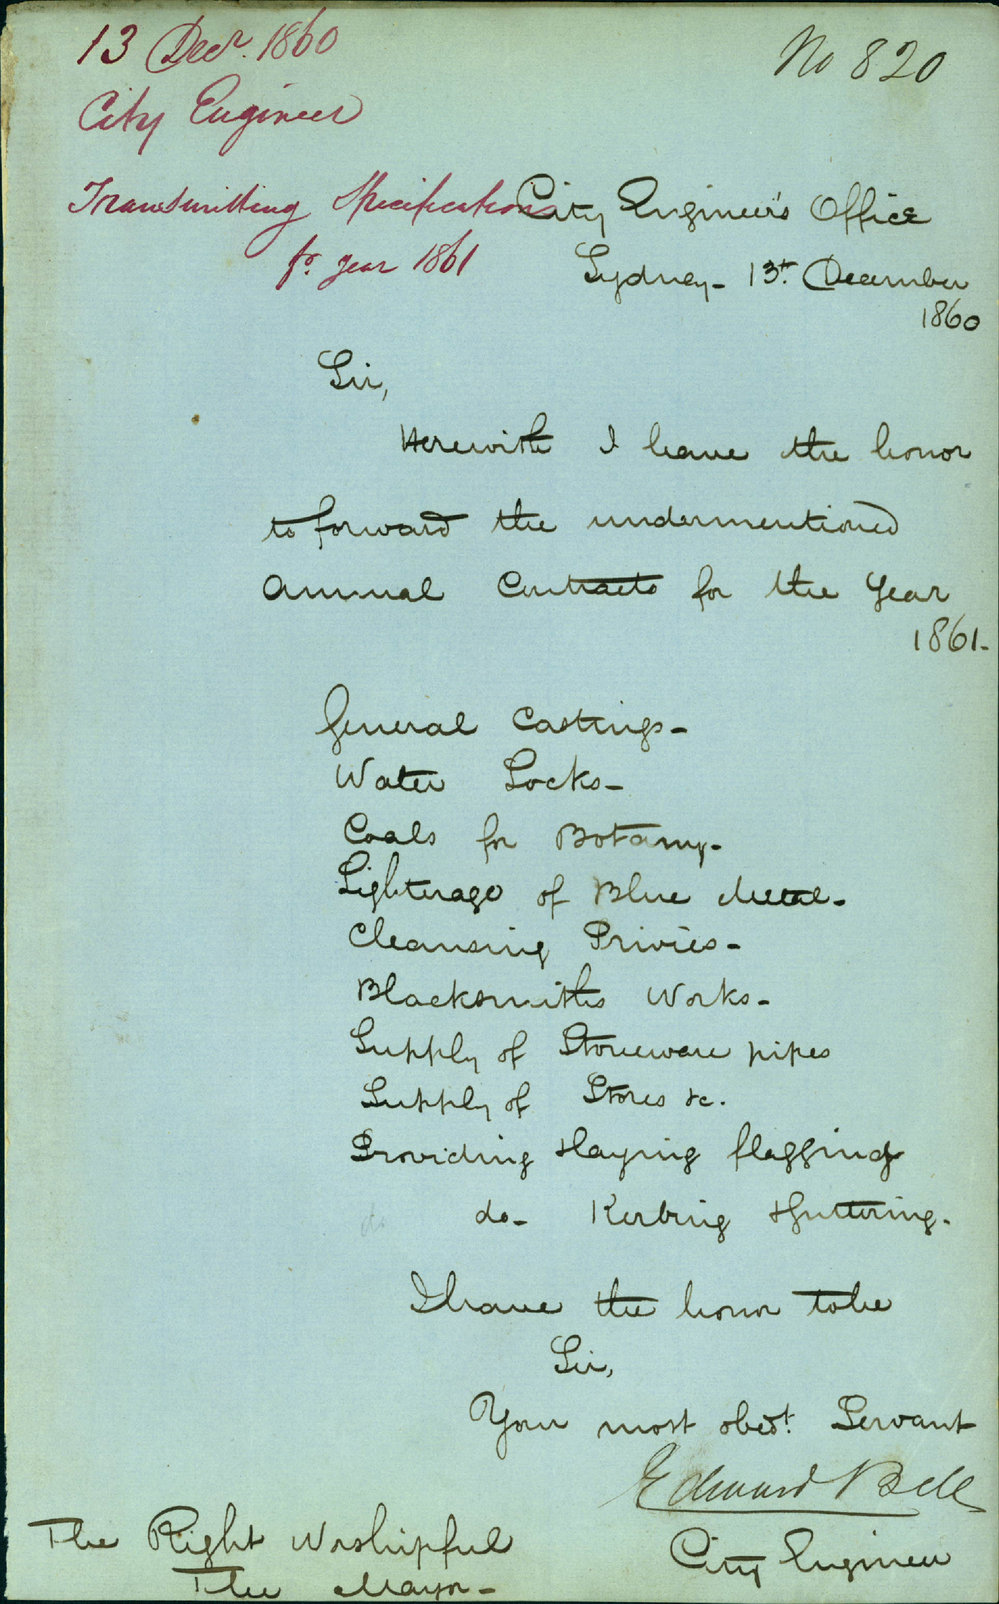 13 Decr. 1860
No 820
City Engineer
Transmitting Specifications
fr. year 1861
City Engineer's Office
Sydney - 13t. December
1860
Sir,
Herewith I have the honor
to forward the undermentioned
Annual Contracts for the Year
1861 -
General Castings -
Water Locks -
Coals for Botany -
Lighterage of Blue Metal -
Cleansing Privies -
Blacksmiths Works -
Supply of Stoneware pipes
Supply of Stores &c.
Providing & laying flagging
do do - Kerbing & guttering -
I have the honor to be
Sir,
Your most obedt. Servant
Edward Bell
City Engineer
The Right Worshipful
The Mayor -